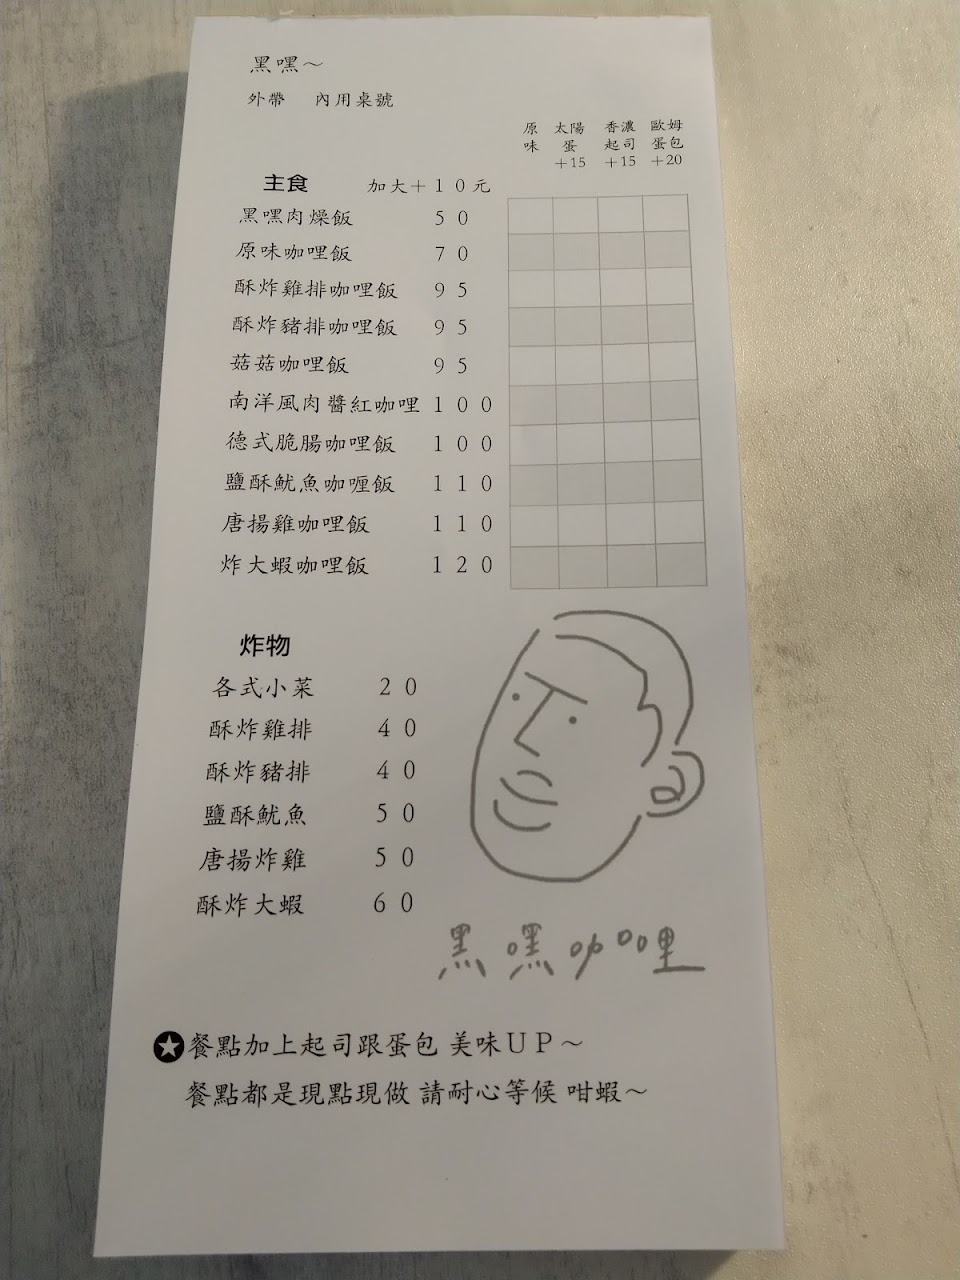 黑嘿～
外帶 內用桌號
原味 太陽蛋+15 香濃起司+15 歐姆蛋包+20
主食 加大+10元
黑嘿肉燥飯 50
原味咖哩飯 70
酥炸雞排咖哩飯 95
酥炸豬排咖哩飯 95
菇菇咖哩飯 95
南洋風肉醬紅咖哩 100
德式脆腸咖哩飯 100
鹽酥魷魚咖喱飯 110
唐揚雞咖哩飯 110
炸大蝦咖哩飯 120
炸物
各式小菜 20
酥炸雞排 40
酥炸豬排 40
鹽酥魷魚 50
唐揚炸雞 50
酥炸大蝦 60
黑嘿咖哩
餐點加上起司跟蛋包 美味UP～
餐點都是現點現做 請耐心等候 咁蝦～